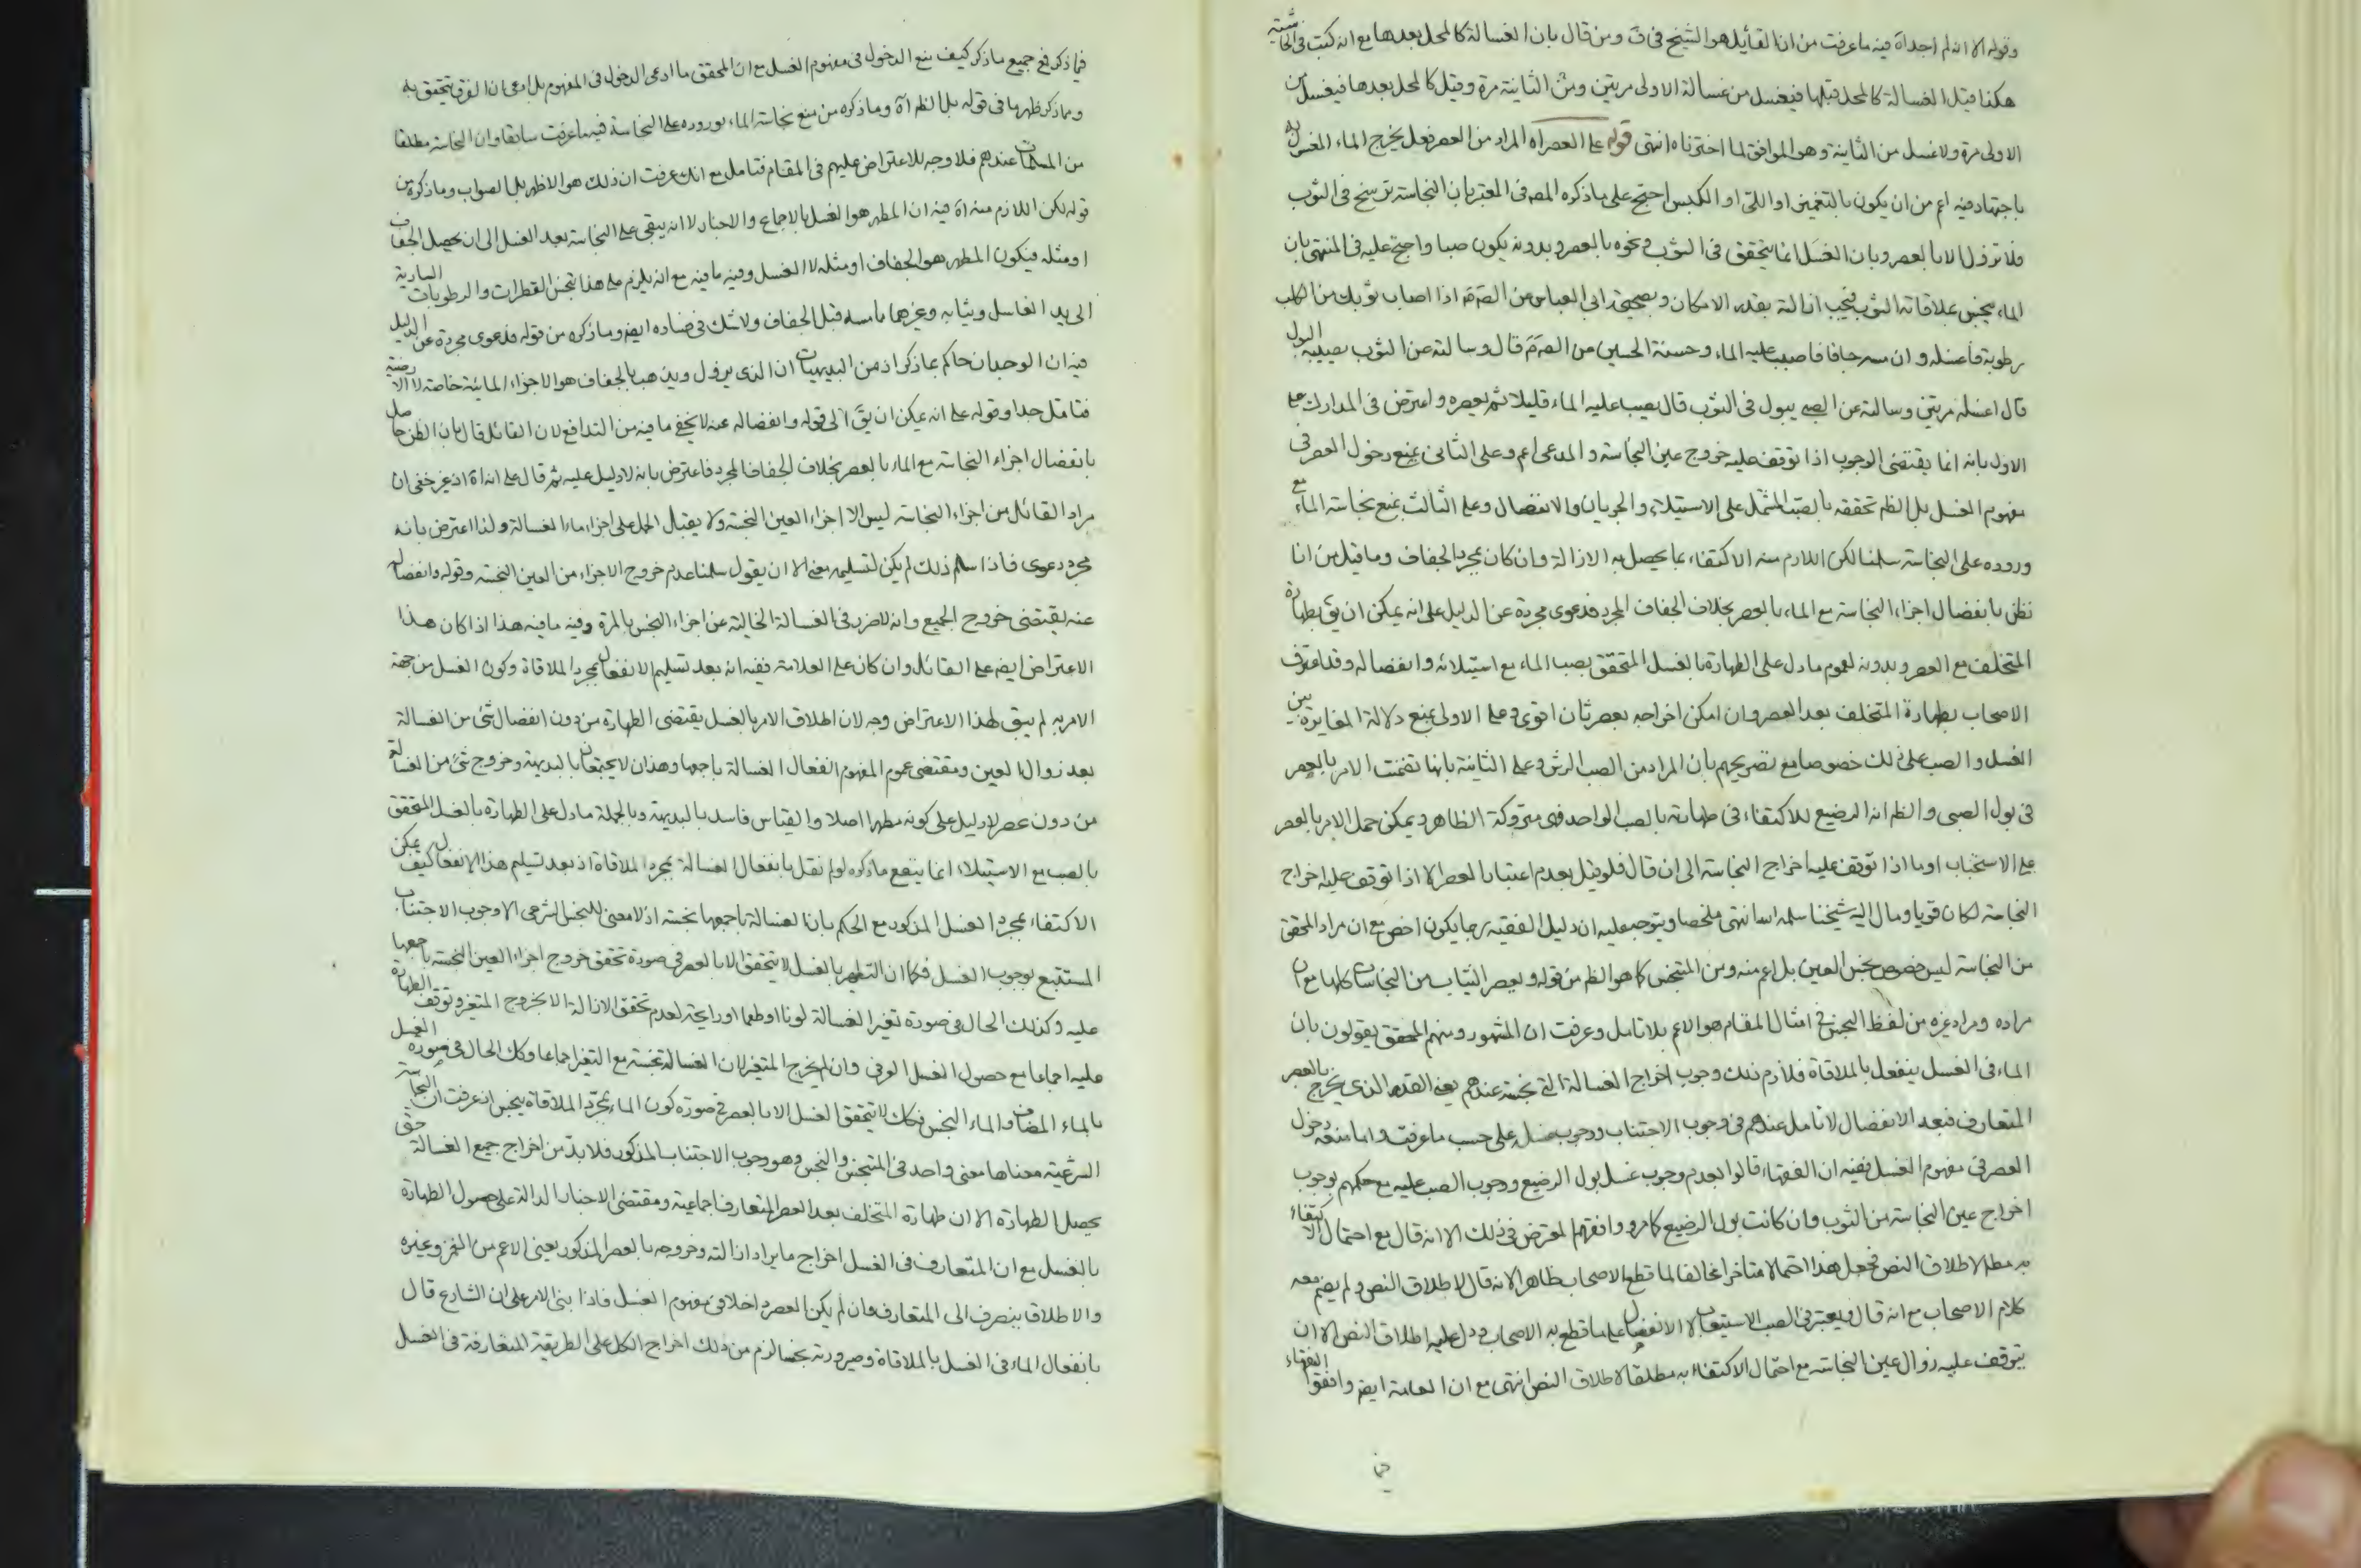 وقوله الا انه لم اجد اه فيه ما عرفت من ان القائل هو الشيخ في ف ومن قال بان الغسالة كالمحل بعدها مع انه كتب في الحاشية
هكذا قيل الغسالة كالمحل قبلها فيغسل من غسالة الاولى مرتين ومن الثانية مرة وقيل كالمحل بعدها فيغسل من
الاولى مرة ولا غسل من الثانية وهو الموافق لما اخترناه انتهى قوله على العصر اه المراد من العصر فعل يخرج الماء المغسول به
باجتهاد فيه اعم من ان يكون بالتغميز او اللتي او الكبس احتج على ما ذكره المص في المعتبر بان النجاسة ترسخ في الثوب
فلا تزول الا بالعصر وبان الغسل انما يتحقق في الثوب ونحوه بالعصر وبدونه يكون صبا واحتج عليه في المنتهى بان
الماء ينجس بملاقاته الثوب فيجب ازالته بقدر الامكان وبصحيحة ابى العباس عن الص ع اذا اصاب ثوبك من الكلب
رطوبة فاغسله وان مسه جافا فاصبب عليه الماء وحسنة الحسين عن الص ع قال وسالته عن الثوب يصيبه البول
قال اغسله مرتين وسالته عن الصبي يبول في الثوب قال يصب عليه الماء قليلا ثم يعصره واعترض في المدارك على
الاول بانه انما يقتضى الوجوب اذا توقف عليه خروج عين النجاسة والمدعى اعم وعلى الثاني بمنع دخول العصر في
مفهوم الغسل بل الظم تحققه بالصب المشتمل على الاستيلاء والجريان والانفصال وعلى الثالث بمنع نجاسة الماء مع
وروده على النجاسة سلمنا لكن اللازم منه الاكتفاء بما يحصل به الازالة وان كان بمجرد الجفاف وما قيل من انا
نظن بانفصال اجزاء النجاسة مع الماء بالعصر بخلاف الجفاف المجرد فدعوى مجردة عن الدليل على انه يمكن ان يق بطهارة
المتخلف مع العصر وبدونه لعموم ما دل على الطهارة بالغسل المتحقق بصب الماء مع استيلائه وانفصاله وقد اعترف
الاصحاب بطهارة المتخلف بعد العصر وان امكن اخراجه بعصر ثان اقوى وعلى الاولى بمنع دلالة المغايرة بين
الغسل والصب على ذلك خصوصا مع تصريحهم بان المراد من الصب الرش وعلى الثانية بانها تضمنت الامر بالعصر
في بول الصبى والظ انه الرضيع للاكتفاء في طهارته بالصب الواحد فهى متروكة الظاهر ويمكن حمل الامر بالعصر
على الاستحباب او ما اذا توقف عليه اخراج النجاسة الى ان قال فلو قيل بعدم اعتبار العصر الا اذا توقف عليه اخراج
النجاسة لكان قويا ومال اليه شيخنا سلمه الله انتهى ملخصا ويتوجه عليه ان دليل الفقيه ربما يكون اخص مع ان مراد المحقق
من النجاسة ليس خصوص نجس العين بل اعم منه ومن المتنجس كما هو الظ من قوله ويعصر الثياب من النجاسات كلها مع ان
مراده ومراد غيره من لفظ النجس في امثال المقام هو الاعم بلا تامل وعرفت ان المشهور ومنهم المحقق يقولون بان
الماء في الغسل ينفعل بالملاقاة فلازم ذلك وجوب اخراج الغسالة التي نجسة عندهم يعنى القدر الذى يخرج بالعصر
المتعارف فبعد الانفصال لا تامل عندهم في وجوب الاجتناب ووجوب غسله على حسب ما عرفت واما منعه دخول
العصر في مفهوم الغسل ففيه ان الفقهاء قالوا بعدم وجوب غسل بول الرضيع ووجوب الصب عليه مع حكمهم بوجوب
اخراج عين النجاسة من الثوب وان كانت بول الرضيع كما مر ووافقهم المعترض في ذلك الا انه قال مع احتمال الاكتفاء
به مطلقا لاطلاق النص فجعل هذا احتمالا متاخرا مخالفا لما قطع الاصحاب ظاهرا لانه قال لاطلاق النص ولم يضم معه
كلام الاصحاب مع انه قال ويعتبر في الصب الاستيعاب لا الانفصال على ما قطع به الاصحاب ودل عليه اطلاق النص الا ان
يتوقف عليه زوال عين النجاسة مع احتمال الاكتفاء به مطلقا لاطلاق النص انتهى مع ان العامة ايضا وافقوا الفقهاء
فيما ذكر فمع جميع ما ذكر كيف يمنع الدخول في مفهوم الغسل مع ان المحقق ما ادعى الدخول في المفهوم بل ادعى ان الفرق يتحقق به
ومما ذكر ظهر ما في قوله بل الظم اه وما ذكره من منع نجاسة الماء بوروده على النجاسة فيه ما عرفت سابقا وان النجاسة مطلقا
من المسلمات عندهم فلا وجه للاعتراض عليهم في المقام فتامل مع انك عرفت ان ذلك هو الاظهر بل الصواب وما ذكره من
قوله لكن اللازم منه اه فيه ان المطهر هو الغسل بالاجماع والاخبار لا انه يبقى على النجاسة بعد الغسل الى ان يحصل الجفاف
او مثله فيكون المطهر هو الجفاف او مثله لا الغسل وفيه ما فيه مع انه يلزم على هذا تنجس القطرات والرطوبات السارية
الى يد الغاسل وثيابه وغيرهما مما مسه قبل الجفاف ولا شك في فساده ايضا وما ذكره من قوله فدعوى مجردة عن الدليل
فيه ان الوجدان حاكم بما ذكر اذ من البديهيات ان الذى يزول ويذهب بالجفاف هو الاجزاء المائية خاصة لا الارضية
فتامل جدا وقوله على انه يمكن ان يق الى قوله وانفصاله عنه لا يخفى ما فيه من التدافع لان القائل قال بان الظن حاصل
بانفصال اجزاء النجاسة مع الماء بالعصر بخلاف الجفاف المجرد فاعترض بانه لا دليل عليه ثم قال على انه اه اذ غير خفى ان
مراد القائل من اجزاء النجاسة ليس الا اجزاء العين النجسة ولا يقبل الحمل على اجزاء ماء الغسالة ولذا اعترض بانه
مجرد دعوى فاذا سلم ذلك لم يكن لتسليمه معنى الا ان يقول سلمنا عدم خروج الاجزاء من العين النجسة وقوله وانفصاله
عنه يقتضى خروج الجميع وانه لا ضرر في الغسالة الخالية عن اجزاء النجس بالمرة وفيه ما فيه هذا اذا كان هذا
الاعتراض ايضا على القائل وان كان على العلامة ففيه انه بعد تسليم الانفعال بمجرد الملاقاة وكون الغسل من جهة
الامر به لم يبق لهذا الاعتراض وجه لان اطلاق الامر بالغسل يقتضى الطهارة من دون انفصال شئ من الغسالة
بعد زوال العين ومقتضى عموم المفهوم انفعال الغسالة باجمعها وهذان لا يجتمعان بالبديهة وخروج شئ من الغسالة
من دون عصر لا دليل على كونه مطهرا اصلا والقياس فاسد بالبديهة وبالجملة ما دل على الطهارة بالغسل المتحقق
بالصب مع الاستيلاء انما ينفع ما ذكره لو لم نقل بانفعال الغسالة بمجرد الملاقاة اذ بعد تسليم هذا الانفعال كيف يمكن
الاكتفاء بمجرد الغسل المذكور مع الحكم بان الغسالة باجمعها نجسة اذ لا معنى للنجس الشرعى الا وجوب الاجتناب
المستتبع لوجوب الغسل فكما ان التطهير بالغسل لا يتحقق الا بالعصر في صورة تحقق خروج اجزاء العين النجسة باجمعها
عليه وكذلك الحال في صورة تغير الغسالة لونا او طعما او رايحة لعدم تحقق الازالة الا بخروج المتغير وتوقف الطهارة
عليه اجماعا مع حصول الغسل العرفي وان لم يخرج المتغير لان الغسالة نجسة مع التغير اجماعا وكك الحال في صورة الغسل
بالماء المضاف والماء النجس فكك لا يتحقق الغسل الا بالعصر في صورة كون الماء بمجرد الملاقاة ينجس اذ عرفت ان النجاسة
الشرعية معناها معنى واحد في المتنجس والنجس وهو وجوب الاجتناب المذكور فلا بد من اخراج جميع الغسالة حتى
يحصل الطهارة الا ان طهارة المتخلف بعد العصر المتعارف اجماعية ومقتضى الاخبار الدالة على حصول الطهارة
بالغسل مع ان المتعارف في الغسل اخراج ما يراد ازالته وخروجه بالعصر المذكور يعنى الاعم من الغمز وغيره
والاطلاق ينصرف الى المتعارف وان لم يكن العصر داخلا في مفهوم الغسل فاذا بنى الامر على ان الشارع قال
بانفعال الماء في الغسل بالملاقاة وصيرورته نجسا لزم من ذلك اخراج الكل على الطريقة المتعارفة في الغسل